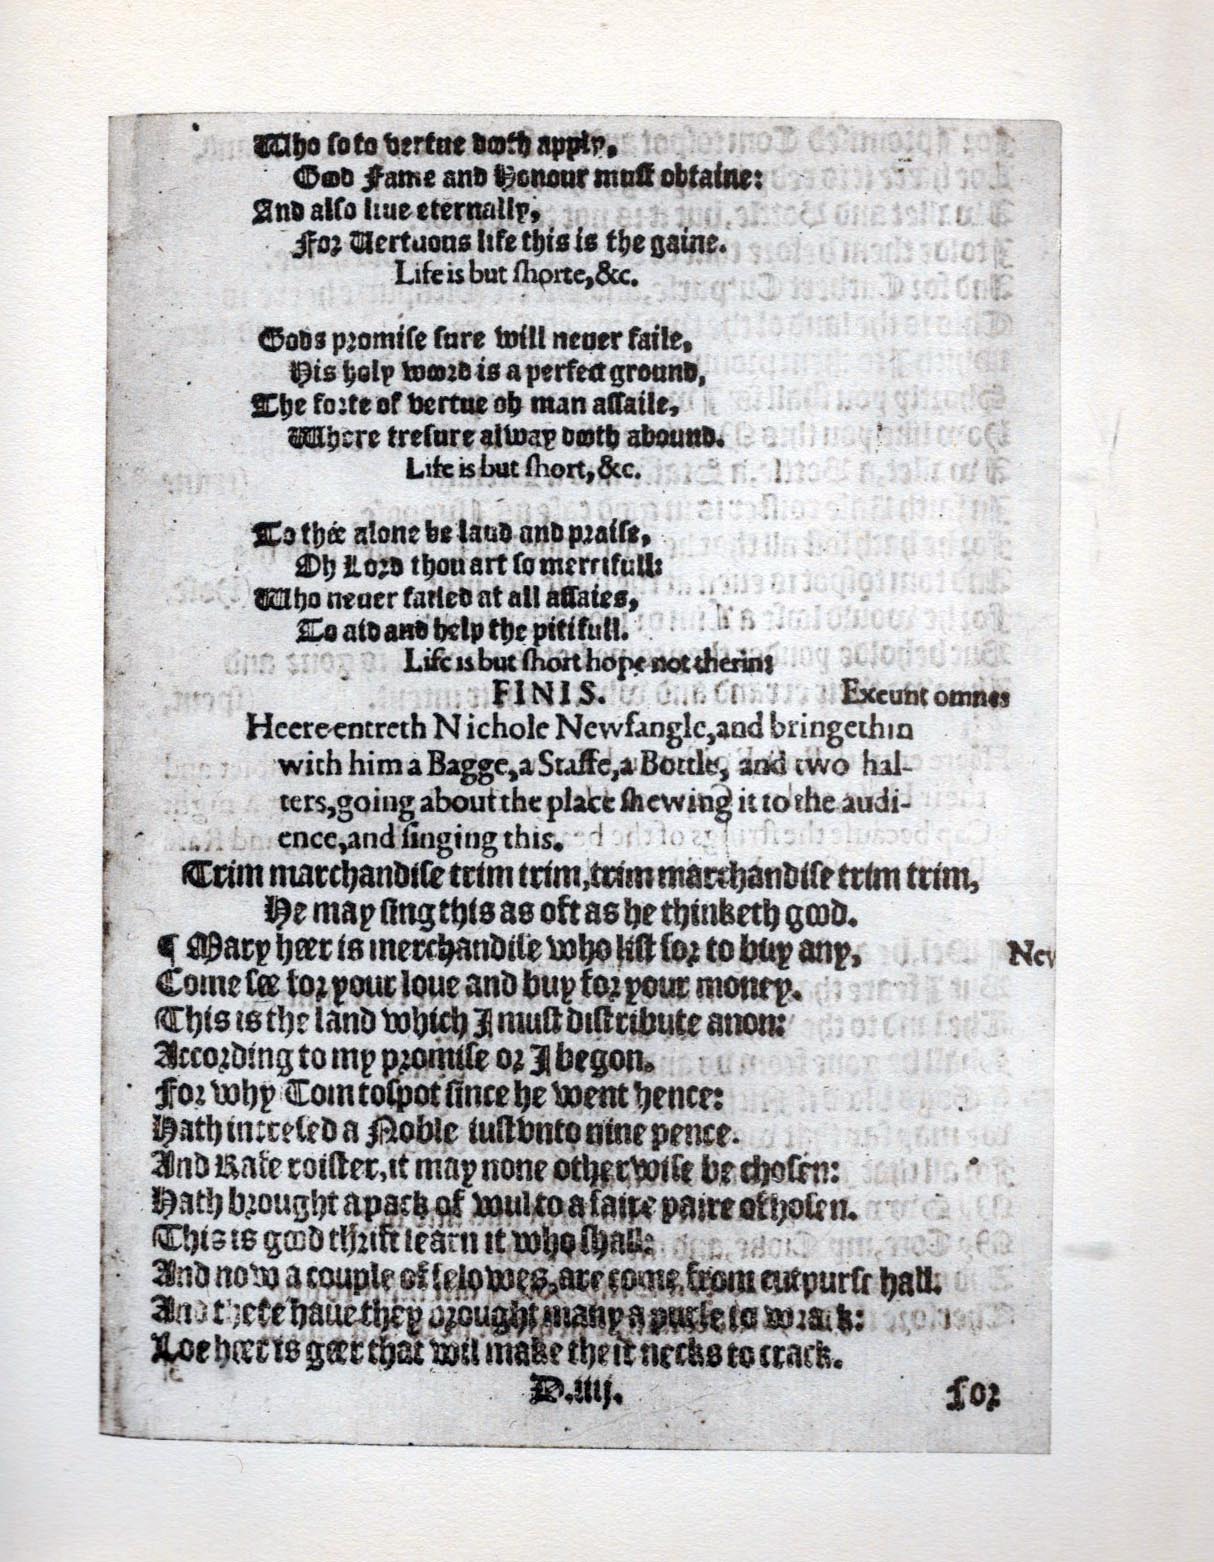 Who so to vertue dooth apply,
Good Fame and Honour must obtaine:
And also liue eternally,
For Vertuous life this is the gaine.
Life is but shorte, &c.
Gods promise sure will neuer faile,
His holy woord is a perfect ground,
The forte of vertue oh man assaile,
Where tresure alway dooth abound.
Life is but short, &c.
To thee alone be laud and praise,
Oh Lord thou art so mercifull:
Who neuer failed at all assaies,
To aid and help the pitifull.
Life is but short hope not therin:
FINIS. Exeunt omnes
Heere entreth Nichole Newfangle, and bringeth in
with him a Bagge, a Staffe, a Bottle, and two hal-
ters, going about the place shewing it to the audi-
ence, and singing this.
Trim marchandise trim trim, trim marchandise trim trim,
He may sing this as oft as he thinketh good.
¶ Mary heer is merchandise who list for to buy any, New
Come see for your loue and buy for your money.
This is the land which I must distribute anon:
According to my promise or I begon.
For why Tom tospot since he went hence:
Hath intcresed a Noble iust vnto nine pence.
And Rafe roister, it may none otherwise be chosen:
Hath brought a pack of wul to a faire paire of hosen.
This is good thrift learn it who shall:
And now a couple of felowes, are come from cutpurse hall.
And there haue they brought many a purse to wrack:
Loe heer is geer that wil make their necks to crack.
D.iiij. For